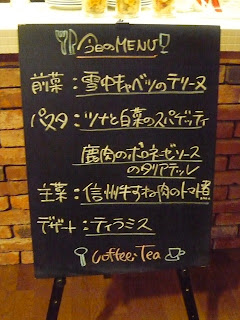 今日のMENU
前菜：雪中キャベツのテリーヌ
パスタ：ツナと白菜のスパゲッティ
鹿肉のボロネーゼソース
のタリアテッレ
主菜：信州牛すね肉のトマト煮
デザート：ティラミス
Coffee・Tea